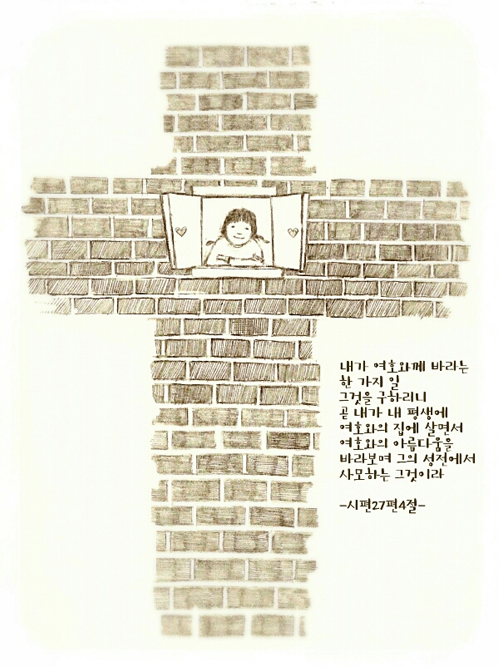 내가 여호와께 바라는
한 가지 일
그것을 구하리니
곧 내가 내 평생에
여호와의 집에 살면서
여호와의 아름다움을
바라보며 그의 성전에서
사모하는 그것이라
-시편27편4절-